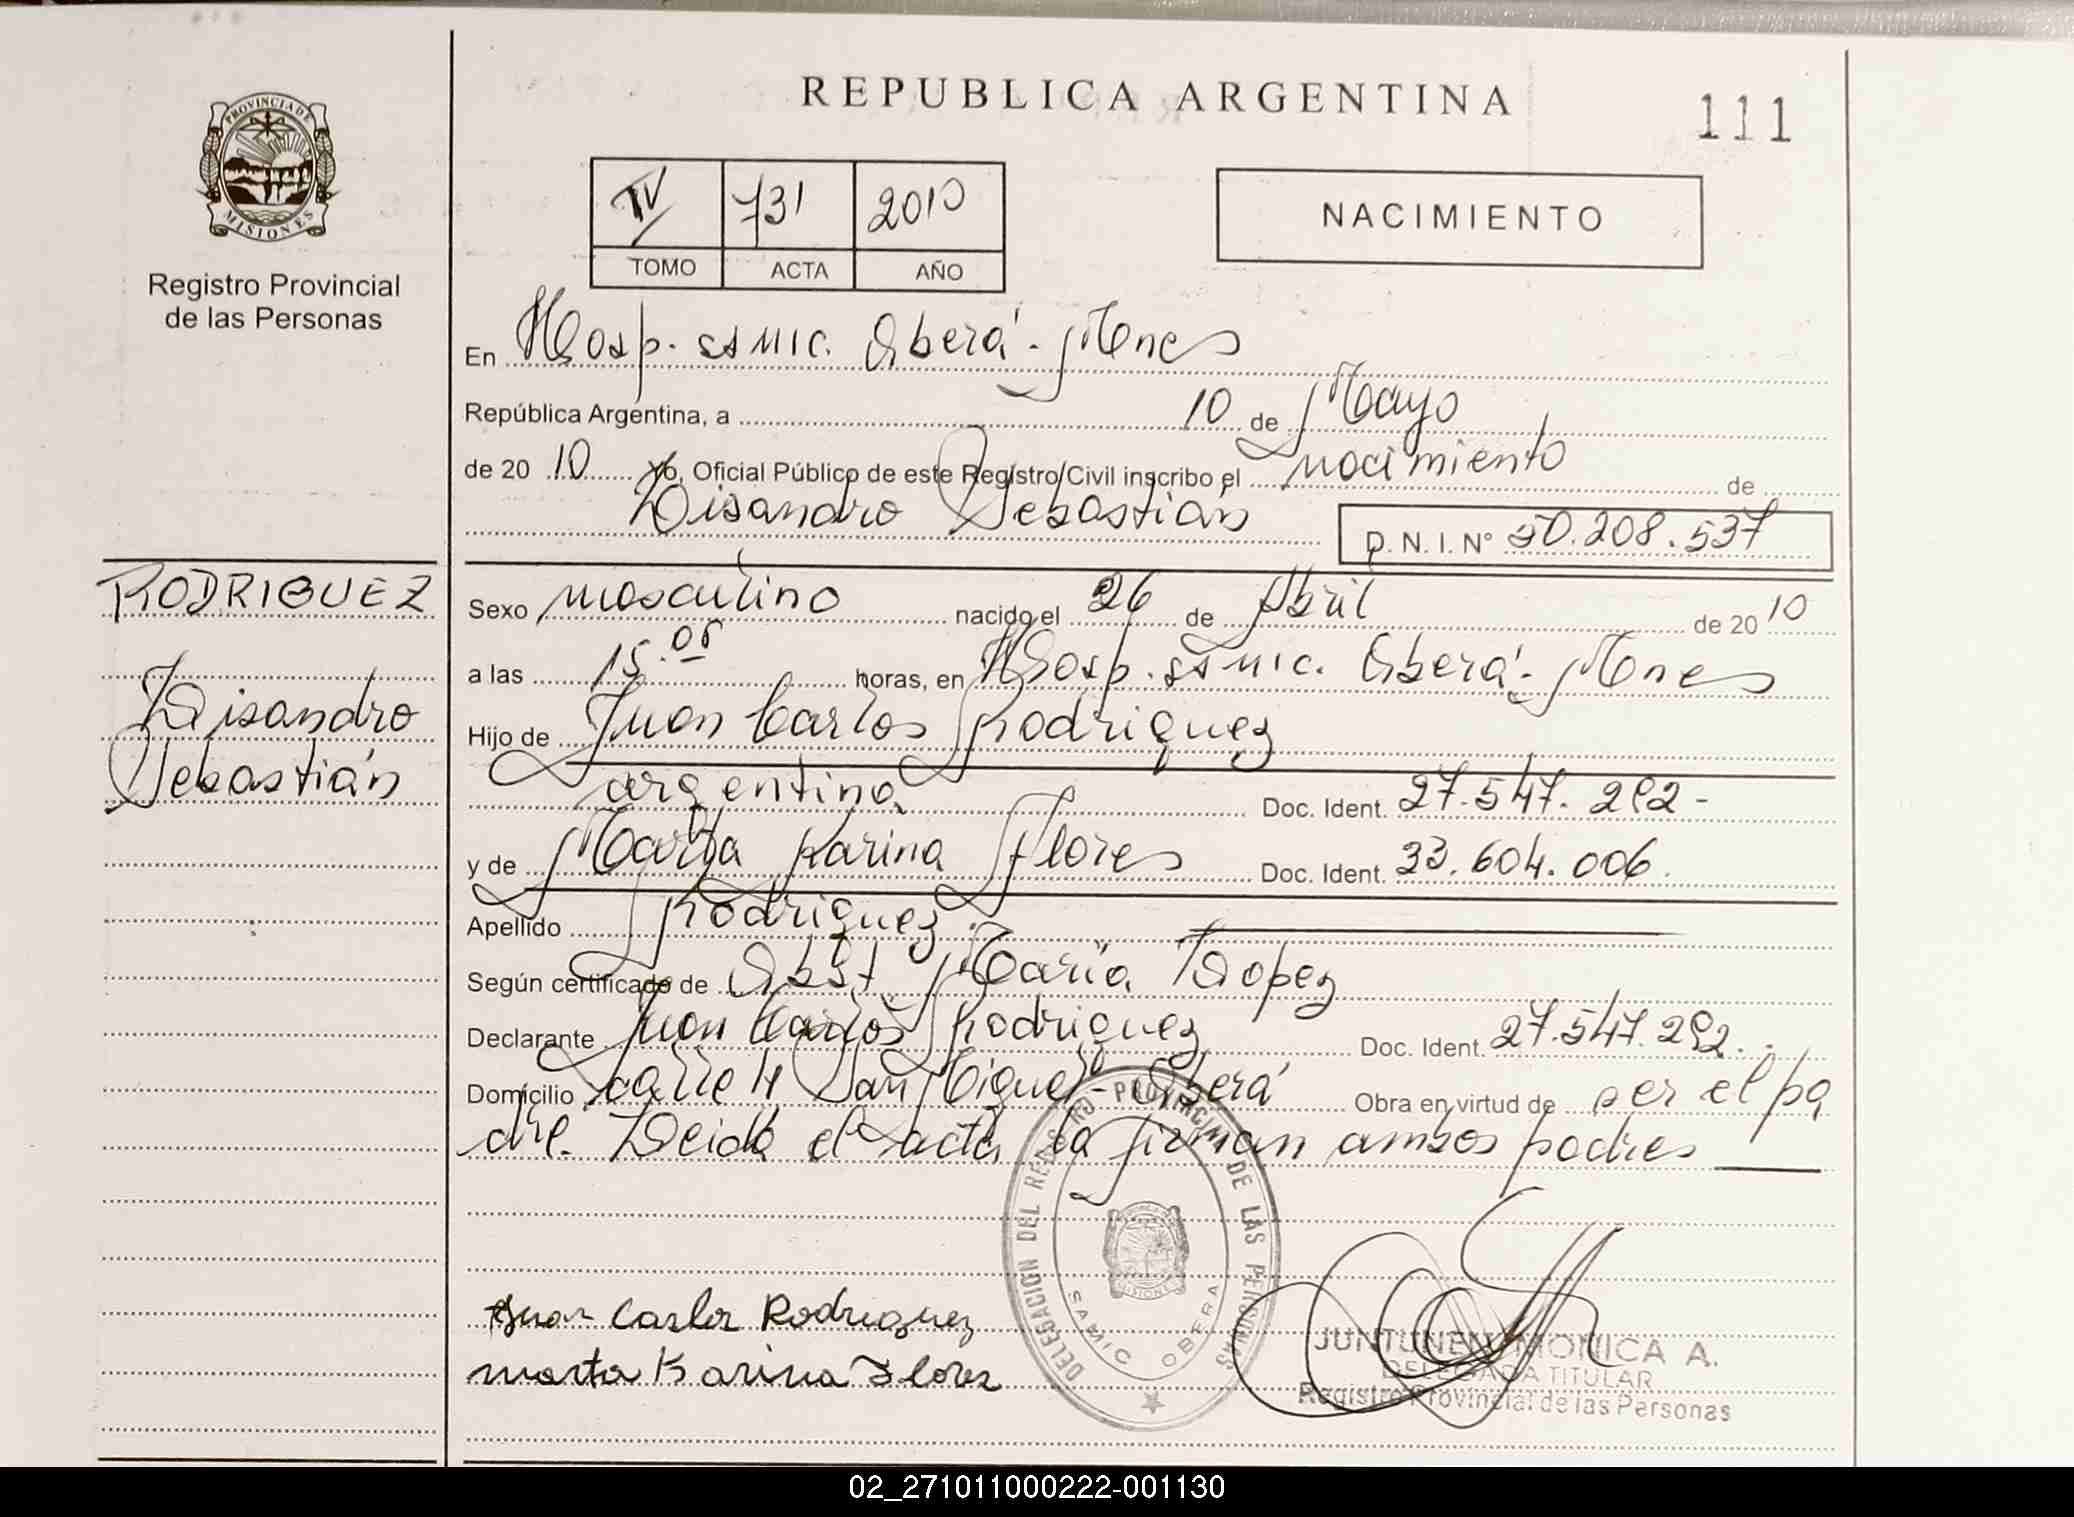 REPUBLICA ARGENTINA
111
PROVINCIA DE
MISIONES
Registro Provincial
de las Personas
IV 731 2010
TOMO ACTA AÑO
NACIMIENTO
En Hosp. SAMIC. Oberá - Mnes
República Argentina, a 10 de Mayo
de 20 10 Yo, Oficial Público de este Registro Civil inscribo el nacimiento de
Lisandro Sebastián
D. N. I. N° 50.208.537
RODRIGUEZ
Lisandro
Sebastián
Sexo masculino nacido el 26 de Abril de 20 10
a las 15.05 horas, en Hosp. SAMIC. Oberá - Mnes
Hijo de Juan Carlos Rodriguez
argentino Doc. Ident. 27.547.292-
y de Marta Karina Flores Doc. Ident. 33.604.006.
Apellido Rodriguez.
Según certificado de Obst. María Lopez
Declarante Juan Carlos Rodriguez Doc. Ident. 27.547.292.
Domicilio calle 4 San Miguel - Oberá Obra en virtud de ser el pa
dre. Leida el acta la firman ambos padres
DELEGACION DEL REGISTRO PROVINCIAL DE LAS PERSONAS
MISIONES
SAMIC OBERA
Juan Carlos Rodriguez
Marta Karina Flores
JUNTUNEN MONICA A.
DELEGADA TITULAR
Registro Provincial de las Personas
02_271011000222-001130